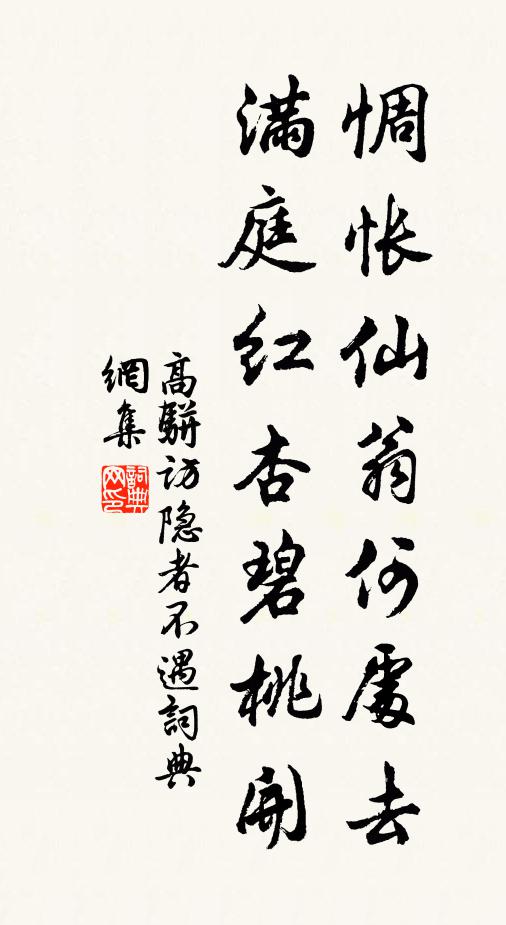 惆怅仙翁何處去
滿庭红杏碧桃開
高駢访隐者不遇詞典
網集
詞典网印